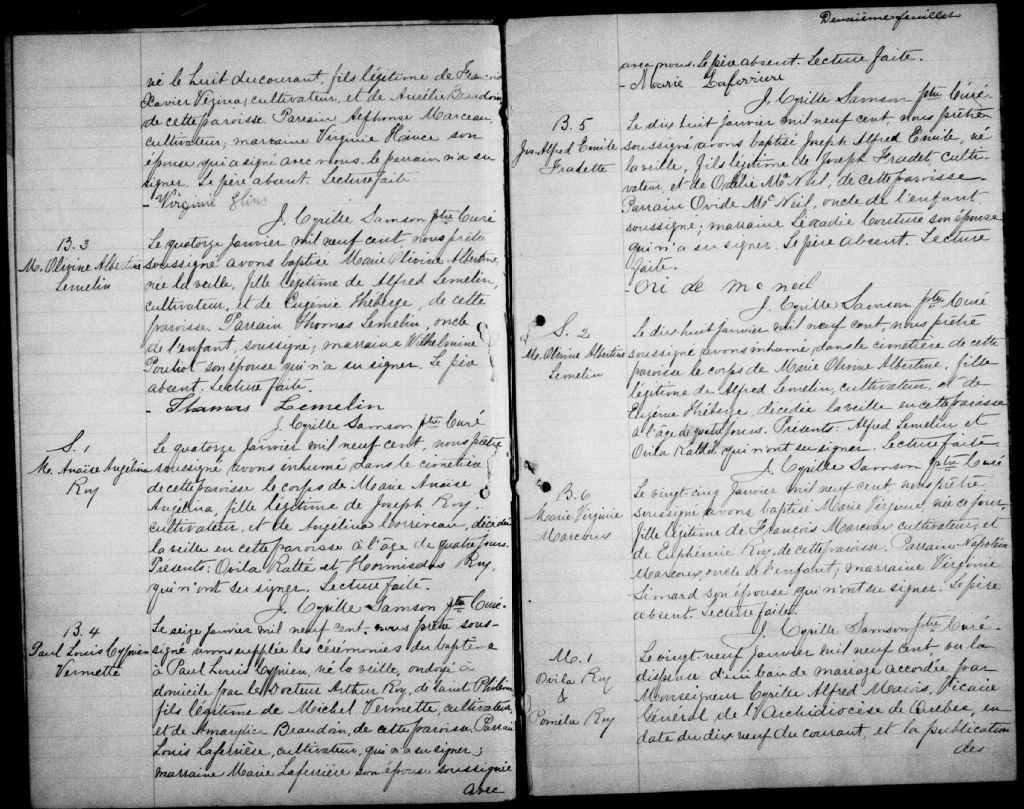 né le huit du courant, fils légitime de
Xavier Vézina, cultivateur, et de Aurélie Beaudoin
de cette paroisse. Parrain Alphonse Marceau,
cultivateur, marraine Virginie Hince son
épouse qui a signé avec nous. le parrain n'a su
signer. Le père absent. Lecture faite
- Virginie
J. Cyrille Samson ptre Curé
B. 3
M. Olivine Albertine
Lemelin
Le quatorze janvier mil neuf cent, nous prêtre
soussigné avons baptisé Marie Olivine Albertine,
née la veille, fille légitime de Alfred Lemelin,
cultivateur, et de Eugénie Théberge, de cette
paroisse. Parrain Thomas Lemelin, oncle
de l'enfant, soussigné; marraine Wilhelmine
Pouliot son épouse qui n'a su signer. Le père
absent. Lecture faite.
- Thomas Lemelin
J. Cyrille Samson ptre Curé
S. 1
M. Anaïse Angélina
Roy
Le quatorze janvier mil neuf cent, nous prêtre
soussigné avons inhumé dans le cimetière
de cette paroisse le corps de Marie Anaïse
Angelina, fille légitime de Joseph Roy,
cultivateur, et de Angélina Corriveau, décédée
la veille en cette paroisse à l'âge de quatre jours.
Présents: Ovila Ratté et Hormisdas Roy,
qui n'ont su signer. Lecture faite.
J. Cyrille Samson ptre Curé.
B. 4
Paul Louis Cyprien
Vermette
Le seize janvier mil neuf cent, nous prêtre sous-
signé avons supplée les cérémonies du baptême
à Paul Louis Cyprien, né la veille, ondoyé à
domicile par le Docteur Arthur Roy, de Saint Philémon
fils légitime de Michel Vermette, cultivateur,
et de Amarylis Beaudoin, de cette paroisse. Parrain
Louis Laferrière, cultivateur, qui n'a su signer;
marraine Marie Laferrière son épouse soussignée
avec
Deuxième feuillet
avec nous. Le père absent. Lecture faite.
- Marie Laferriere
J. Cyrille Samson ptre Curé.
B. 5
Jos. Alfred Emile
Fradette
Le dix huit janvier mil neuf cent, nous prêtre
soussigné avons baptisé Joseph Alfred Emile, né
la veille, fils légitime de Joseph Fradet, culti-
vateur, et de Odélie Mc Neil, de cette paroisse.
Parrain Ovide Mc Neil, oncle de l'enfant
soussigné; marraine Léocadie Couture son épouse
qui n'a su signer. Le père absent. Lecture
faite.
- Ovi de mc neil
J. Cyrille Samson ptre Curé
S. 2
M. Olivine Albertine
Lemelin
Le dix huit janvier mil neuf cent nous prêtre
soussigné avons inhumé dans le cimetière de cette
paroisse le corps de Marie Olivine Albertine, fille
légitime de Alfred Lemelin, cultivateur, et de
Eugénie Théberge, décédée la veille en cette paroisse
à l'âge de quatre jours. Présents: Alfred Lemelin et
Ovila Ratté qui n'ont su signer. Lecture faite.
J. Cyrille Samson ptre Curé
B. 6
Marie Virginie
Marcoux
Le vingt-cinq janvier mil neuf cent nous prêtre
soussigné avons baptisé Marie Virginie, née ce jour,
fille légitime de François Marcoux cultivateur, et
de Euphémie Roy, de cette paroisse. Parrain Napoléon
Marcoux, oncle de l'enfant; marraine Virginie
Simard son épouse qui n'ont su signer. Le père
absent. Lecture faite.
J. Cyrille Samson ptre Curé.
M. 1
Ovila Roy
&
Poméla Roy
Le vingt-neuf janvier mil neuf cent, vu la
dispense d'un ban de mariage accordée par
Monseigneur Cyrille Alfred Marois, Vicaire
Général de l'Archidiocèse de Québec, en
date du dix neuf du courant, et la publication
des